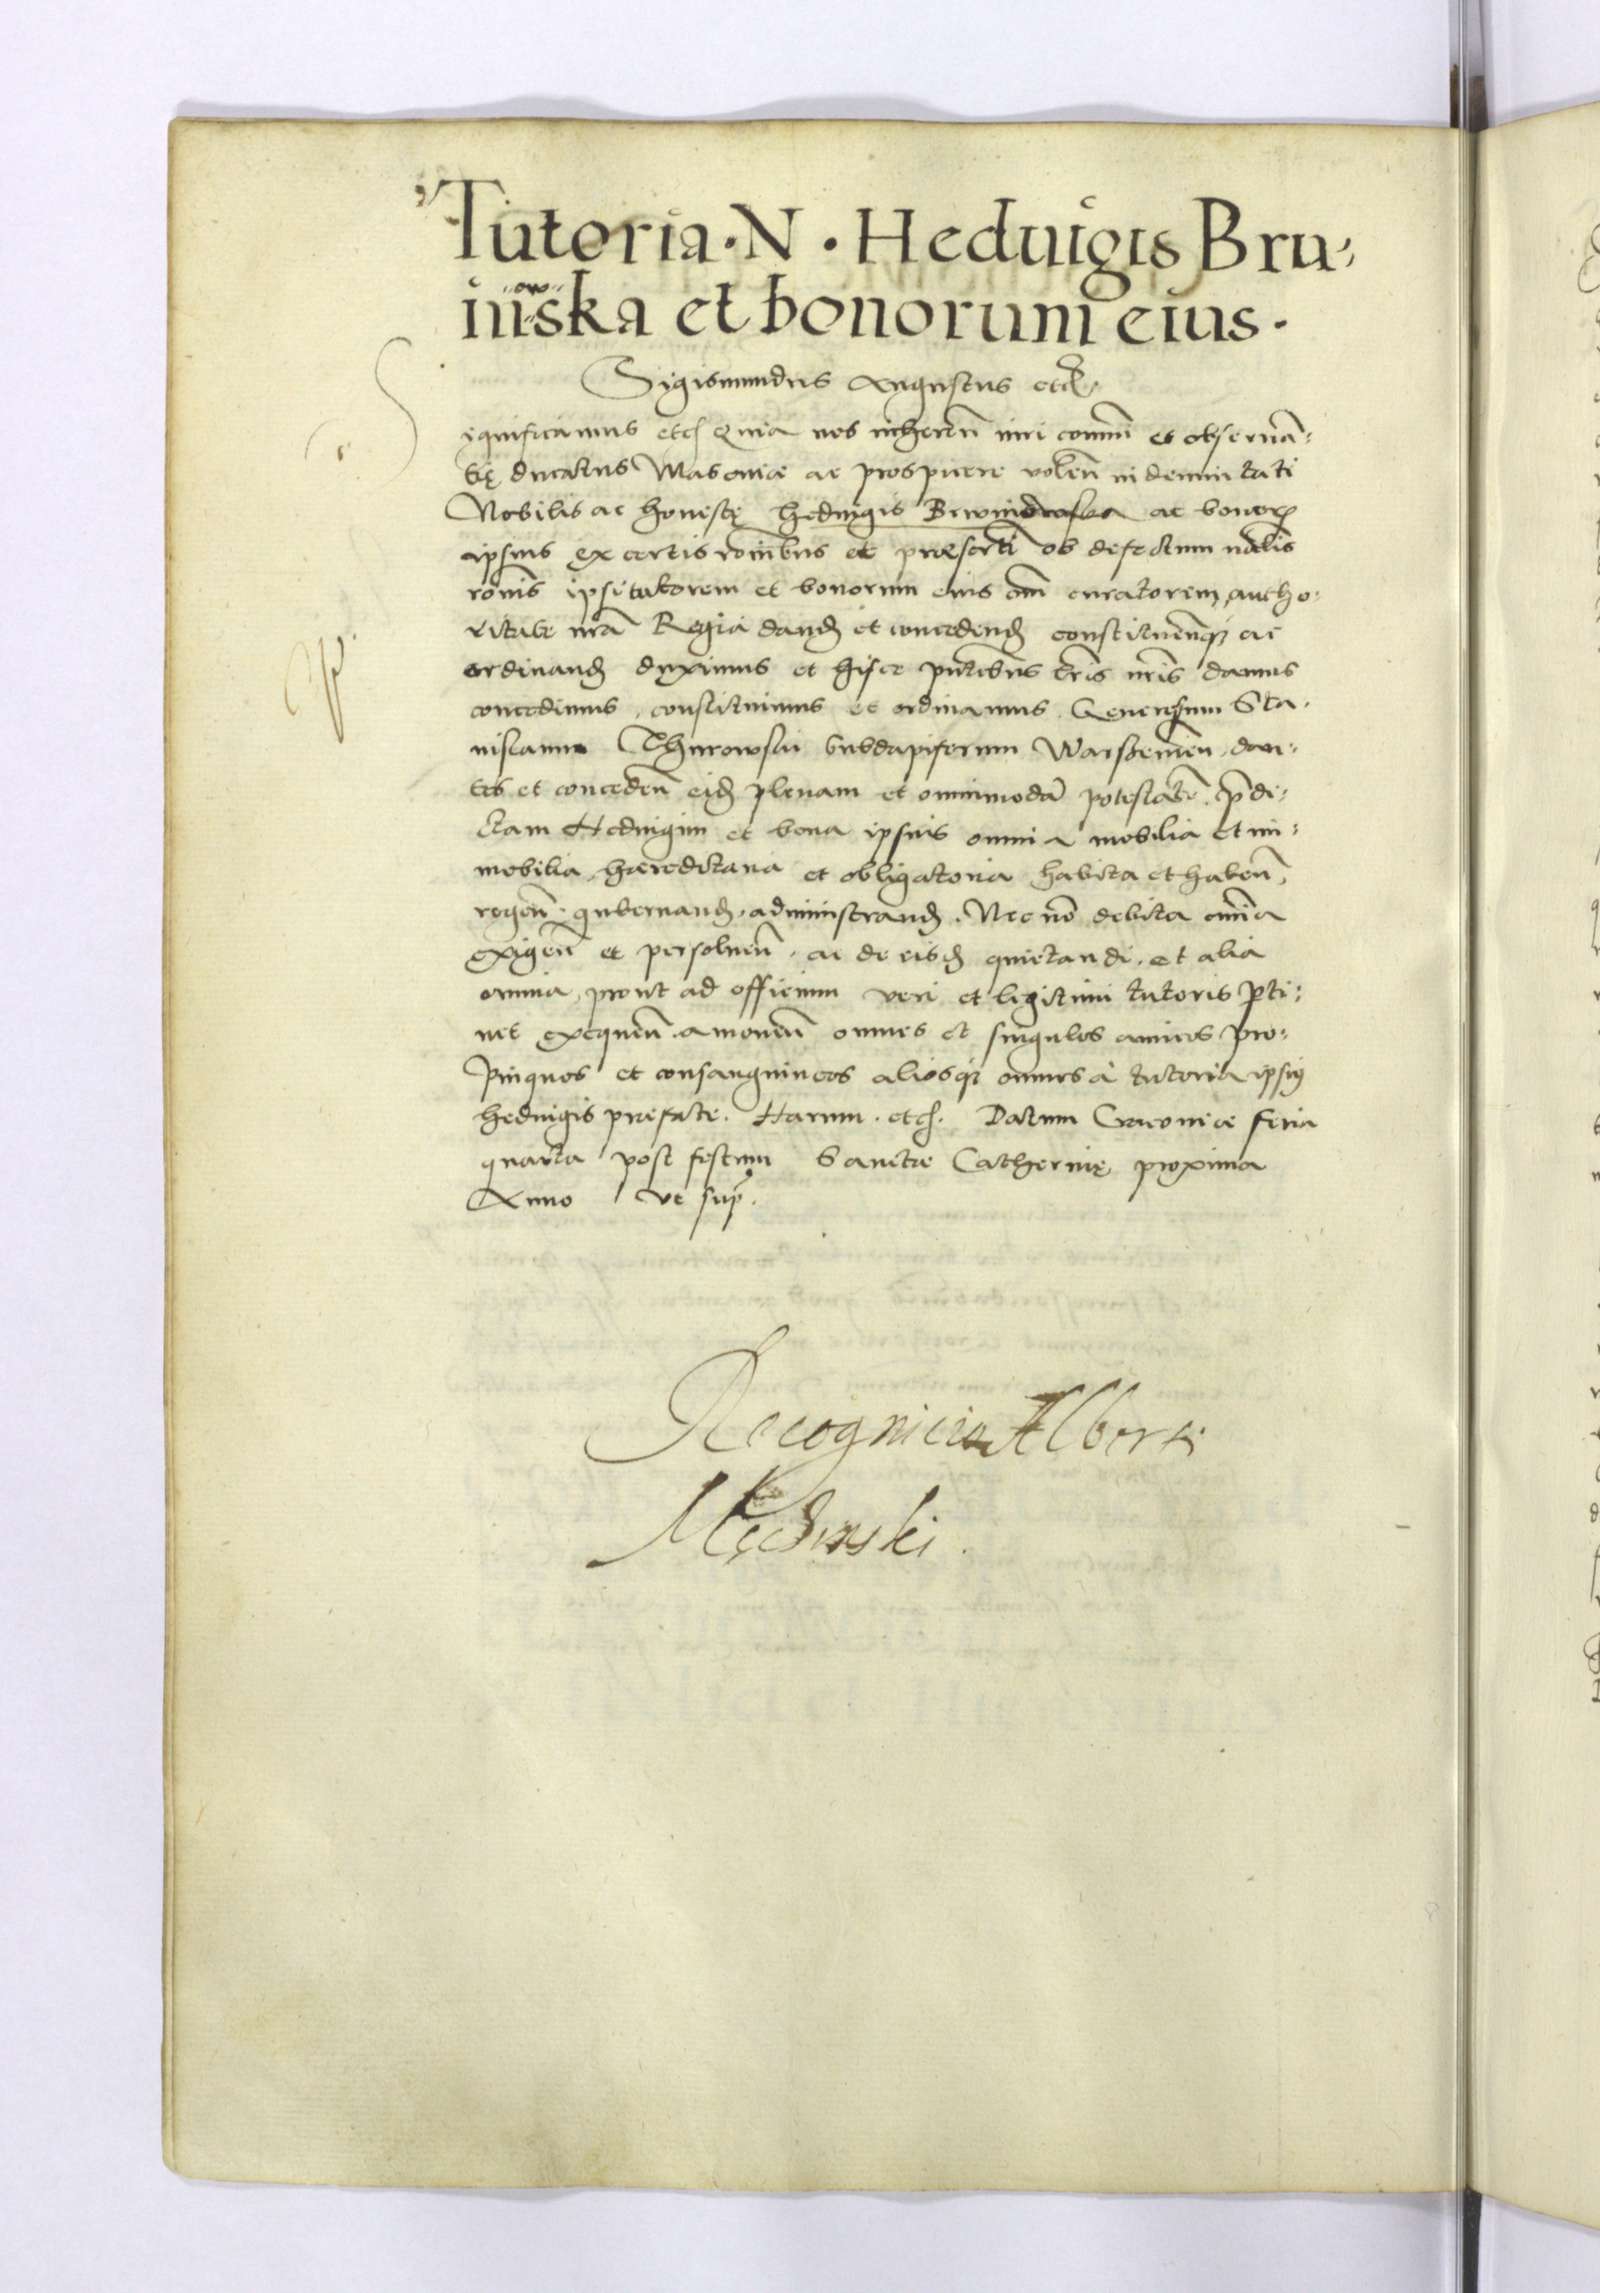 Tutoria · N · Heduigis Bru,
iniowska et bonorum eius ·
Sigismundus Augustus etcz.
Significamus etcz Quia nos inheren̄ iuri com̄ni et obseruā,
tię ducatus Masouiæ ac prospicere volen̄ indemnitati
Nobilis ac honestę Heduigis ac bonorꝝ
ipsius ex certis ro͞nibus et præserti͂ ob defectum n͞ralis
ro͞nis ipsi tutorem et bonorum eius om͞i curatorem, autho,
ritate nr͞a Regia dand̄ et concedend̄ constituen͂q̄ ac
ordinand̄ duximus et hisce pn͞tibus lr͞is nr͞is damus
concedimus, constituimus et ordinamus. Generosum Sta,
nislaum Thurowski subdapiferum Warschouien̄, dan,
tes et conceden̄ eid̄ plenam et omnimodā potestatē. p͞di,
ctam Heduigim et bona ipsius omnia mobilia et im,
mobilia, hæreditaria et obligatoria habita et haben̄,
regen̄, gubernand̄, administrand̄. Nec nō debita omnia
exigen̄ et persoluen̄, ac de eisd̄ quietandi, et alia
omnia, prout ad officium veri et legitimi tutoris p̱ti,
net exequen̄. amouen̄ omnes et singulos amicos pro,
pinquos et consanguineos aliosq̄ omnes à tutoria ipsiꝰ
Heduigis præfate. Harum. etcz. Datum Cracouiæ feria
quarta post festum Sanctæ Catherinę proxima
Anno vt sup̄.
Recognicio Alberti